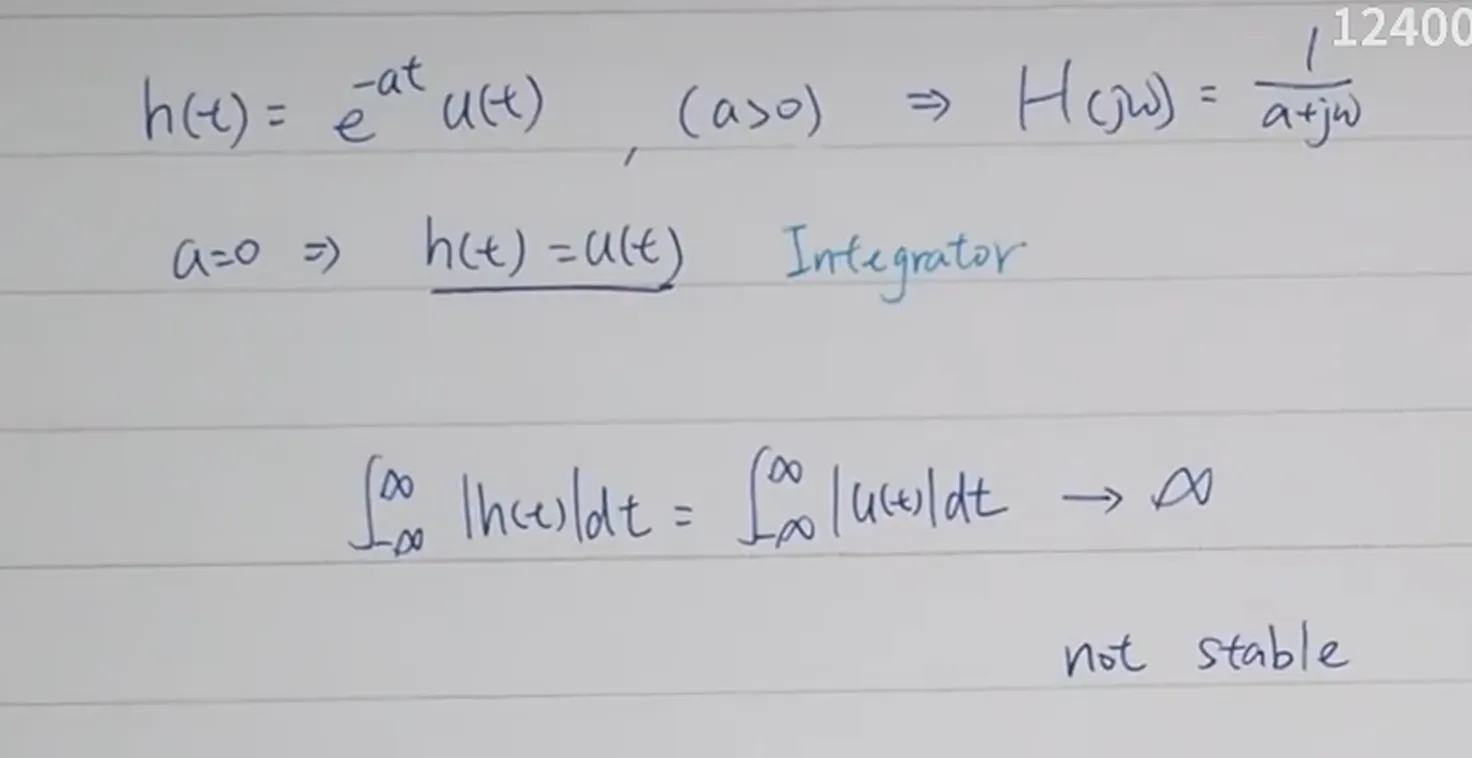 12400
h(t) = e^{-at} u(t) , (a>0) ⇒ H(jω) = 1/(a+jω)
a=0 ⇒ h(t) = u(t) Integrator
∫_{-∞}^{∞} |h(t)|dt = ∫_{-∞}^{∞} |u(t)|dt → ∞
not stable